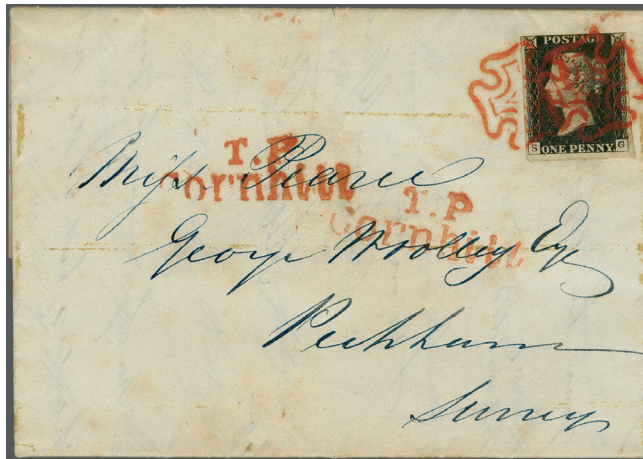 POSTAGE
S ONE PENNY G
T.P
Cornhill
T.P
Cornhill
Miss Pearce
George Woolley Esq
Peckham
Surrey